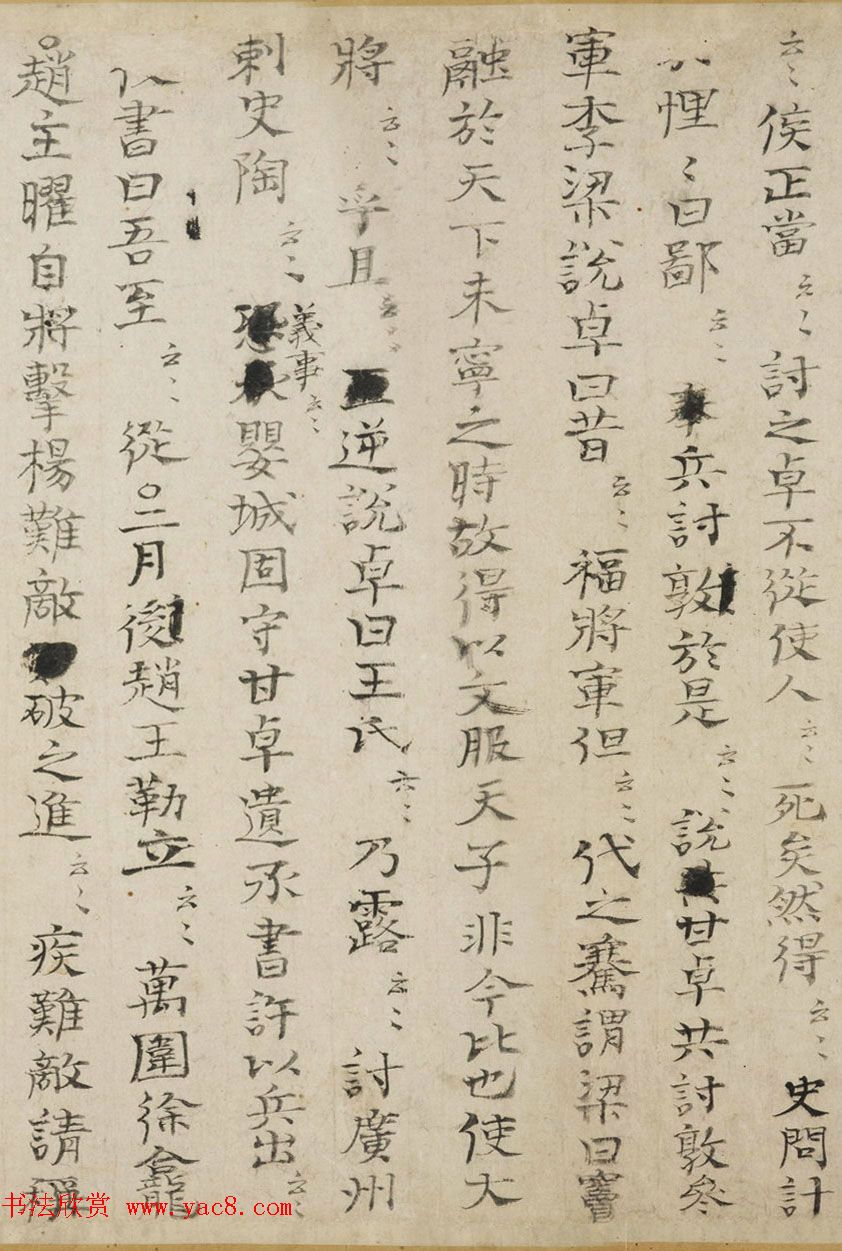 云〻侯正當云〻討之卓不從使人云〻死矣然得云〻史問計
悝〻曰鄙云〻兵討敦於是云〻說甘卓共討敦參
軍李梁說卓曰昔云〻福將軍但云〻代之騫謂梁曰竇
融於天下未寧之時故得以文服天子非今比也使大
將云〻乎且云〻逆說卓曰王氏云〻乃露云〻討廣州
刺史陶云〻義事云〻嬰城固守甘卓遺氶書許以兵出云〻
以書曰吾至云〻從○二月後趙王勒立云〻萬圍徐龕
○趙主曜自將擊楊難敵破之進云〻疾難敵請稱
书法欣赏 www.yac8.com